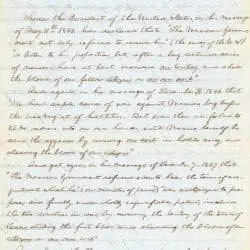 Whereas the President of the United States, in his message
of May 11th 1846, has declared that "The Mexican Government
not only refused to receive him" (the envoy of the U.S.)
to listen to his propositions, but after a long continued series
of menaces have at last invaded our territory, and shed
the blood of our fellow citizens on our own soil"
And again, in his message of December 8, 1846 that
"We had ample cause of war against Mexico, long before
the breaking out of hostilities. But even then we forbore to
take redress into our own hands, until Mexico herself be-
came the aggressor by invading our soil in hostile array, and
shedding the blood of our citizens"
And yet again, in his message of December 7, 1847 that
"The Mexican Government refused even to hear the terms of ad-
justment which he (our minister of peace) was authorized to pro-
pose; and finally, under wholly unjustifiable pretexts, involved
the two countries in war, by invading the territory of the State of
Texas, striking the first blow, and shedding the blood of our
citizens on our own soil"